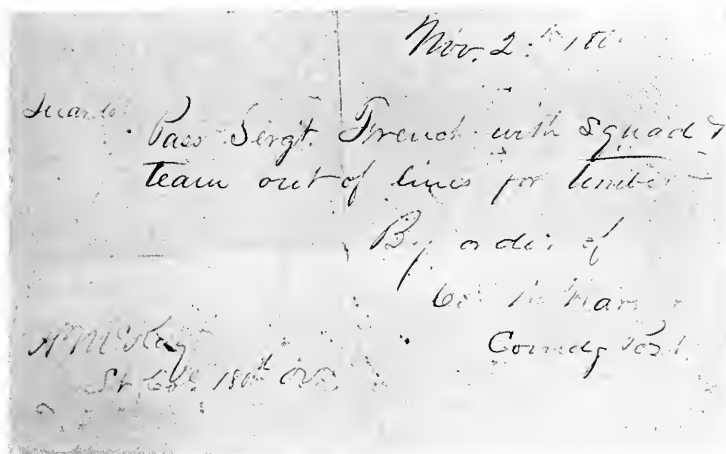 Nov. 2. 186
Guards
Pass Sergt. French with squad &
team out of lines for timber
By order of
Col
Comdg Post.
Lt. Col. 180th OVI.